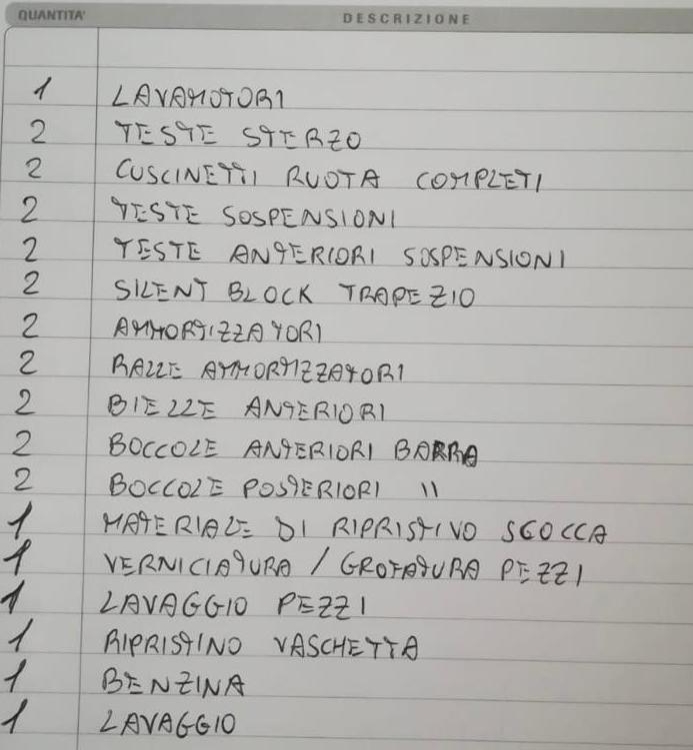 QUANTITA' DESCRIZIONE
1 LAVAMOTORI
2 TESTE STERZO
2 CUSCINETTI RUOTA COMPLETI
2 TESTE SOSPENSIONI
2 TESTE ANTERIORI SOSPENSIONI
2 SILENT BLOCK TRAPEZIO
2 AMMORTIZZATORI
2 RALLE AMMORTIZZATORI
2 BIELLE ANTERIORI
2 BOCCOLE ANTERIORI BARRA
2 BOCCOLE POSTERIORI "
1 MATERIALE DI RIPRISTIVO SCOCCA
1 VERNICIATURA / GROFATURA PEZZI
1 LAVAGGIO PEZZI
1 RIPRISTINO VASCHETTA
1 BENZINA
1 LAVAGGIO